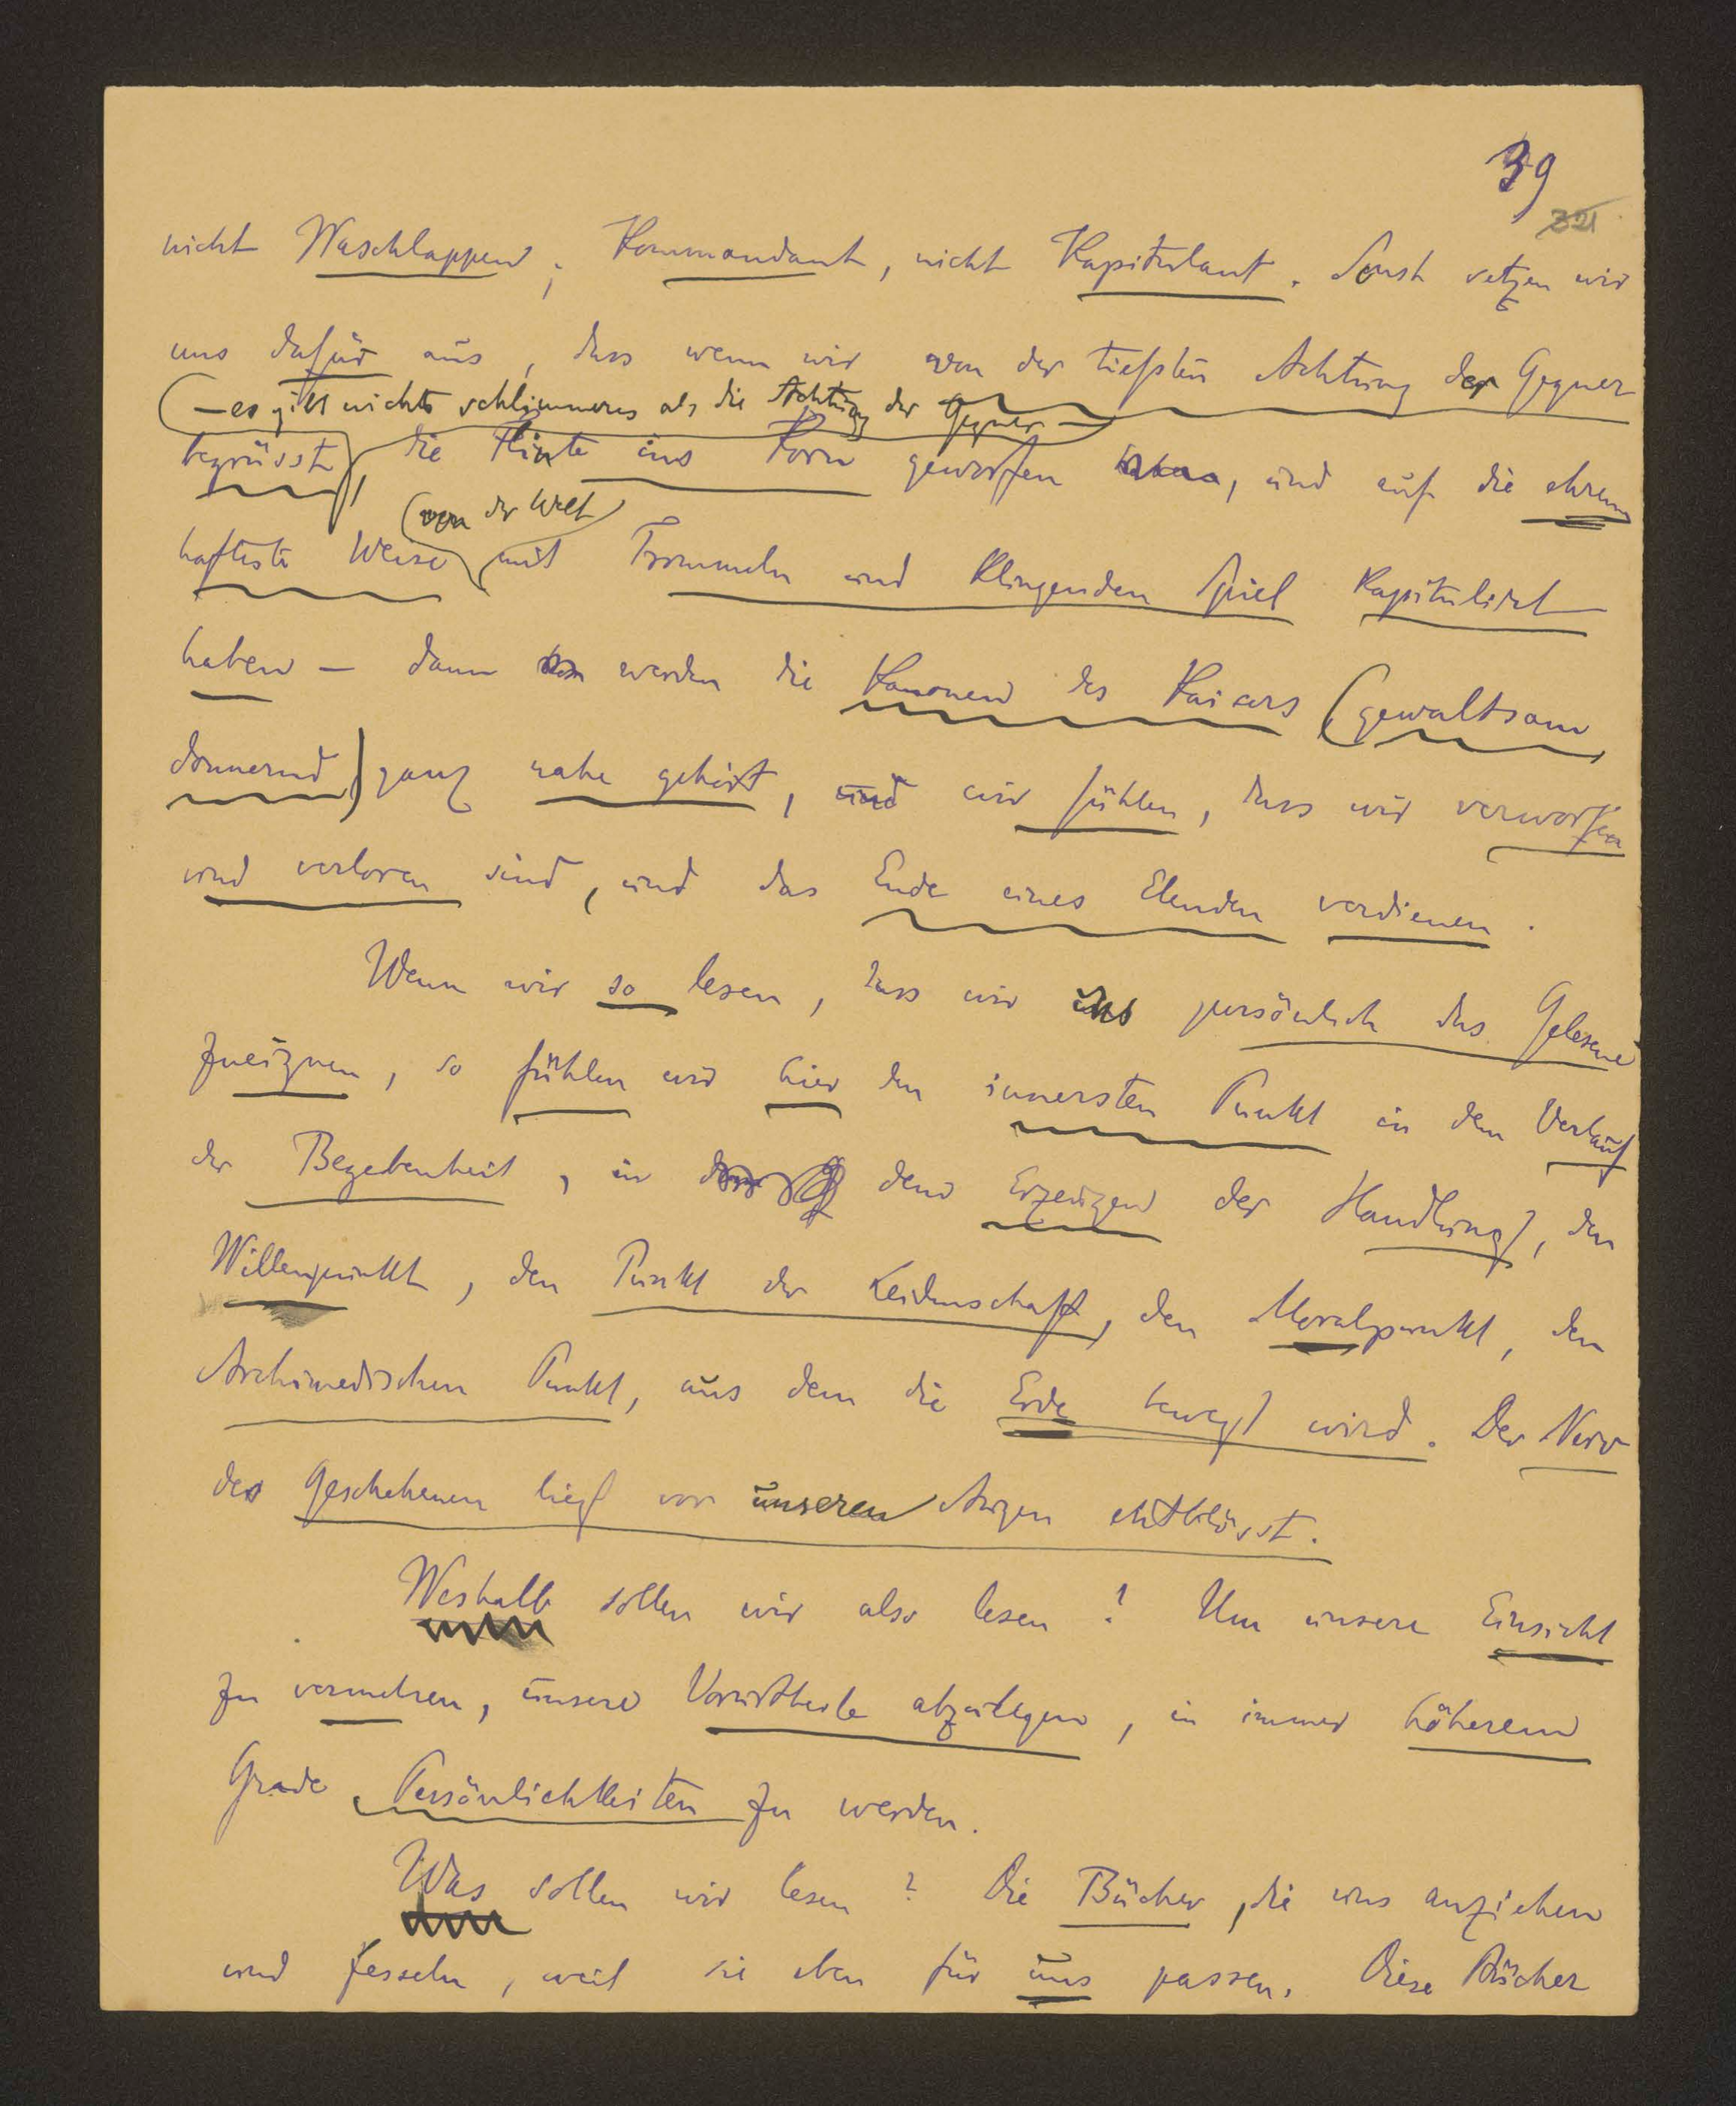 39
321
nicht Waschlappen; Kommandant, nicht Kapitulant. Sonst setzen wir
uns dafür aus, dass wenn wir von der tiefsten Achtung der Gegner
(— es gibt nichts schlimmeres als die Achtung der Gegner —)
begrüsst, die Flinte ins Korn geworfen, und auf die ehren
(von der Welt)
hafteste Weise mit Trommeln und Klingenden Spiel Kapitulirt
haben — dann werden die Kanonen des Kaisers (gewaltsam
donnernd) ganz nahe gehört, und wir fühlen, dass wir verworfen
und verloren sind, und das Ende eines Elenden verdienen.
Wenn wir so lesen, dass wir uns persönlich das Gelesene
zueignen, so fühlen wir hier den innersten Punkt in dem Verlauf
der Begebenheit, in dem Erzeugen der Handlung, den
Willenpunkt, den Punkt der Leidenschaft, den Moralpunkt, den
Archimedischen Punkt, aus dem die Erde bewegt wird. Der Nerv
des Geschehenen liegt vor unseren Augen entblösst.
Weshalb sollen wir also lesen? Um unsere Einsicht
zu vermehren, unsere Vorurtheile abzulegen, in immer höherem
Grade Persönlichkeiten zu werden.
Was sollen wir lesen? Die Bücher, die uns anziehen
und fesseln, weil sie eben für uns passen. Diese Bücher